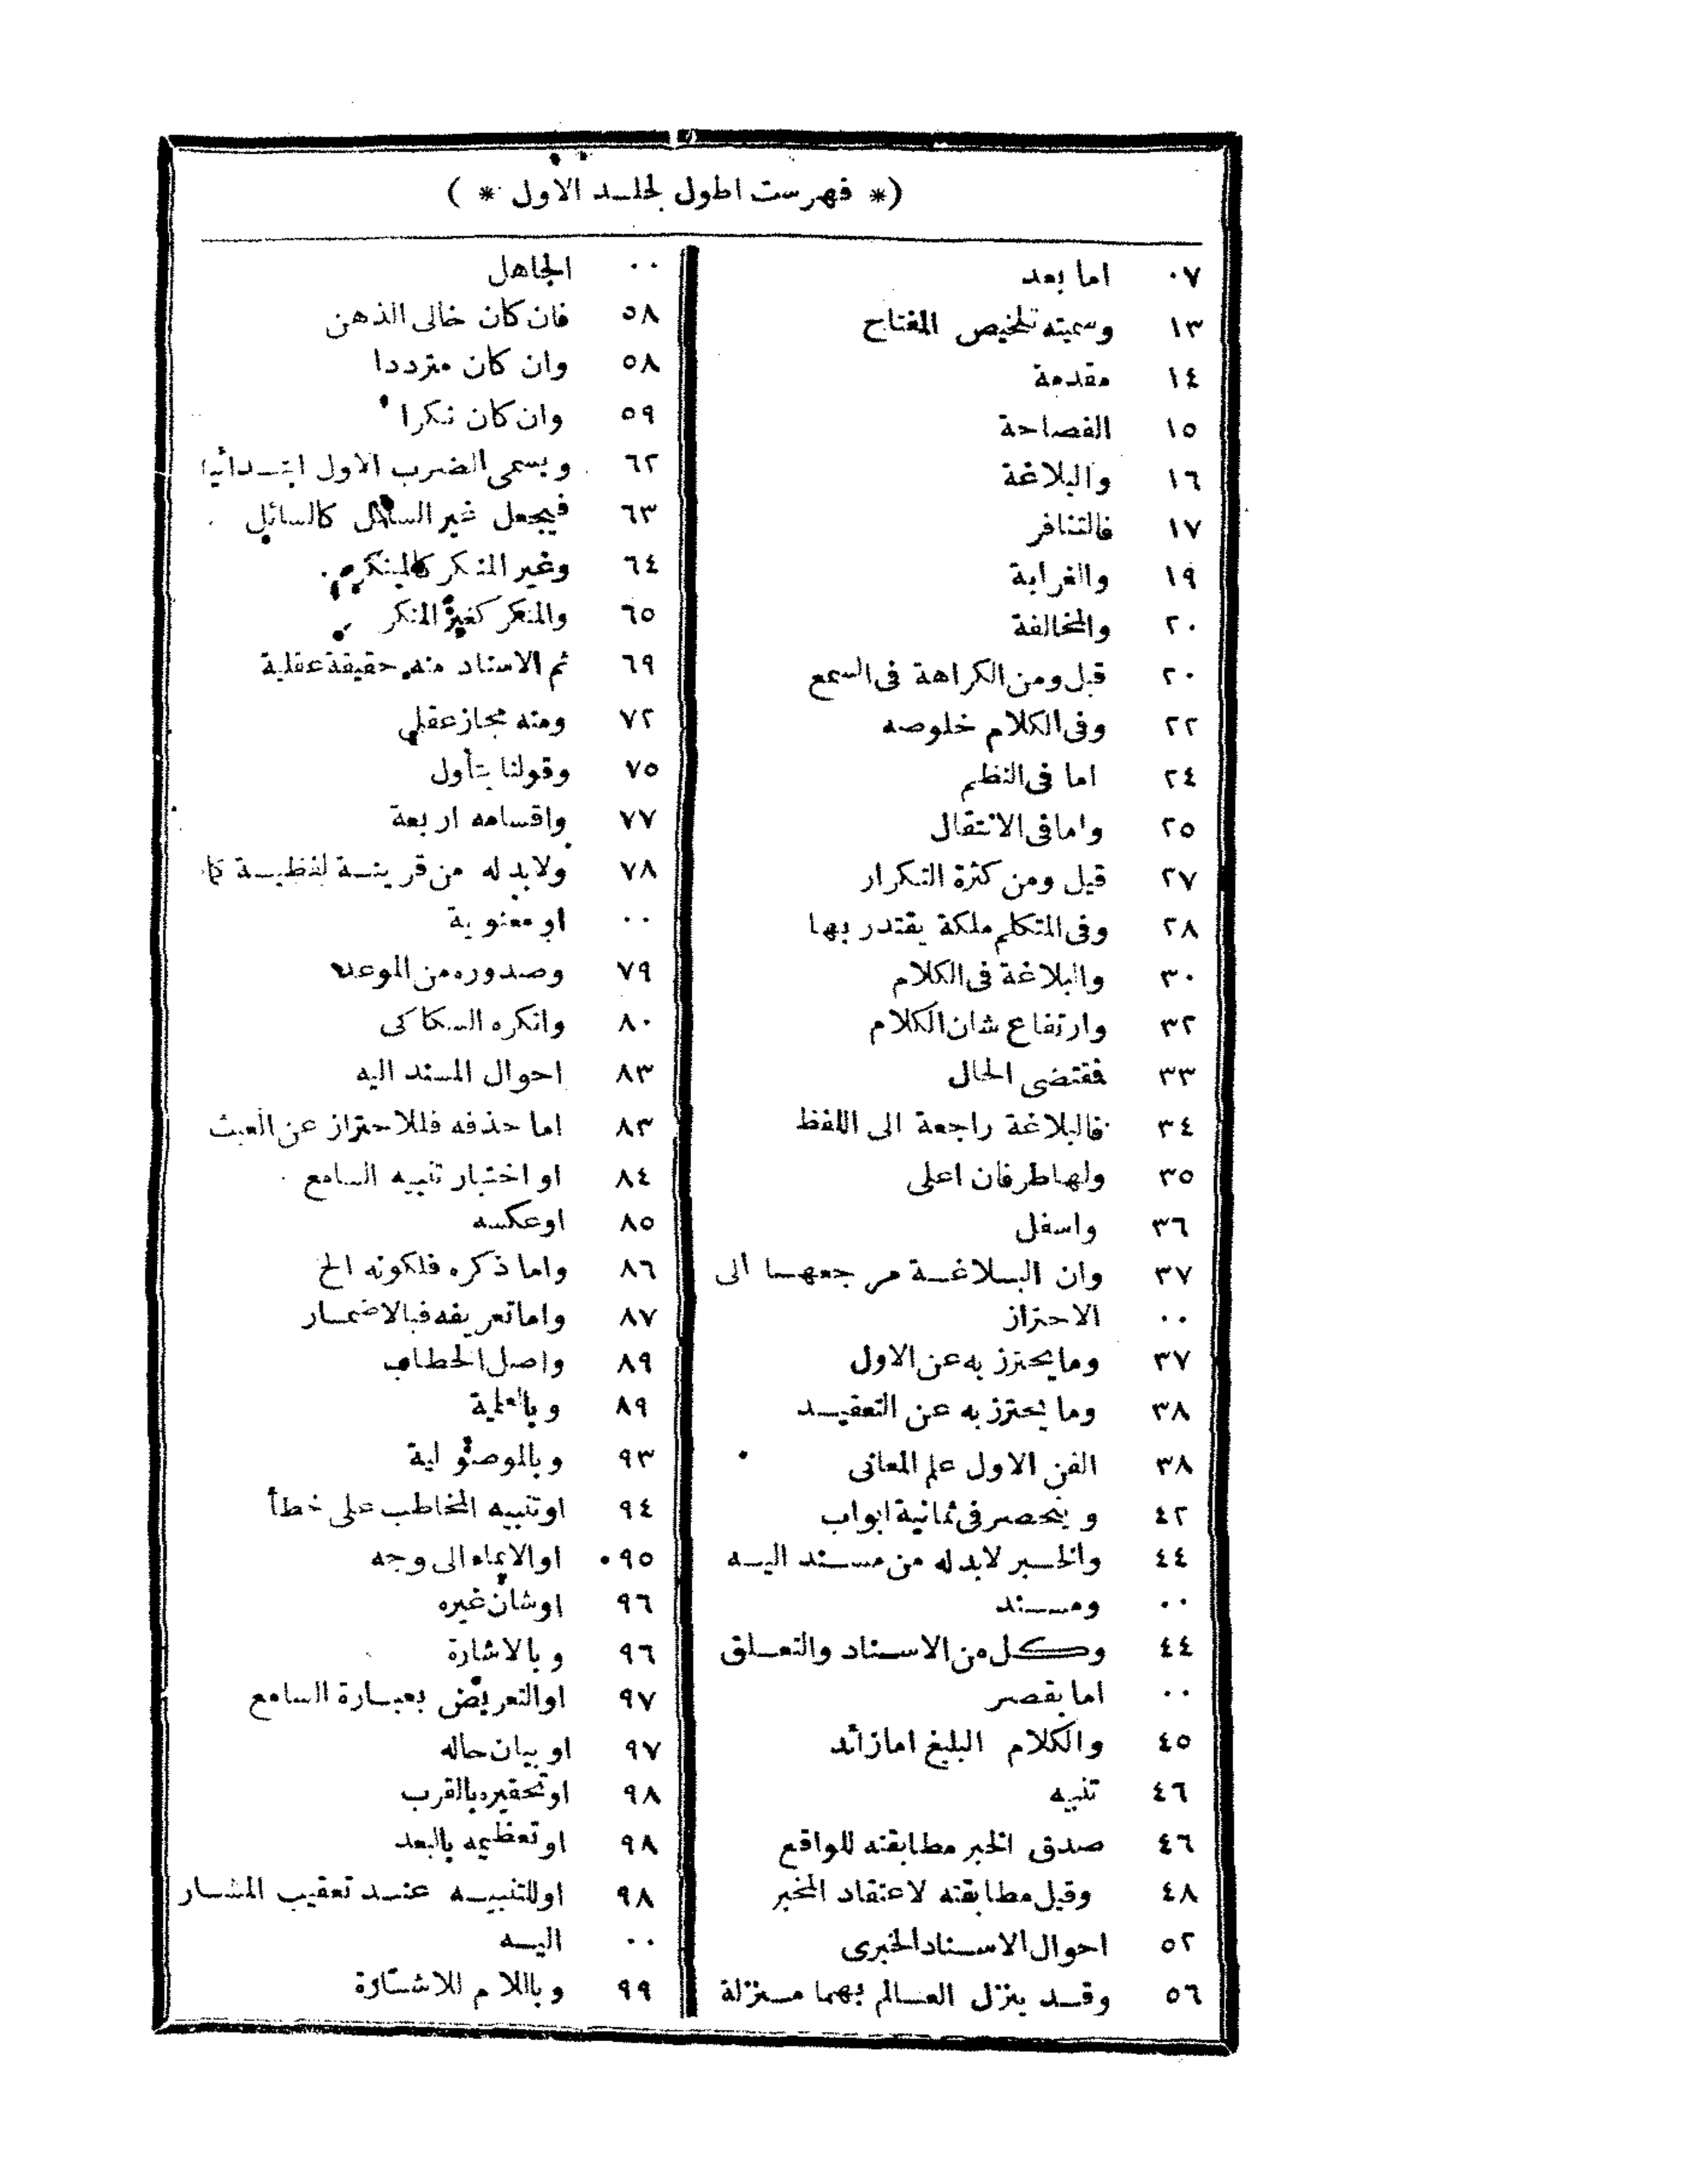 (* فهرست اطول لجلد الاول *)
٠٧ اما بعد
١٣ وسميته تلخيص المفتاح
١٤ مقدمة
١٥ الفصاحة
١٦ والبلاغة
١٧ فالتنافر
١٩ والغرابة
٢٠ والمخالفة
٢٠ قيل ومن الكراهة فى السمع
٢٢ وفى الكلام خلوصه
٢٤ اما فى النظم
٢٥ واما فى الانتقال
٢٧ قيل ومن كثرة التكرار
٢٨ وفى المتكلم ملكة يقتدر بها
٣٠ والبلاغة فى الكلام
٣٢ وارتفاع شان الكلام
٣٣ فمقتضى الحال
٣٤ فالبلاغة راجعة الى اللفظ
٣٥ ولها طرفان اعلى
٣٦ واسفل
٣٧ وان البلاغة مرجعها الى
٠٠ الاحتراز
٣٧ وما يحترز به عن الاول
٣٨ وما يحترز به عن التعقيد
٣٨ الفن الاول علم المعانى
٤٢ وينحصر فى ثمانية ابواب
٤٤ والخبر لابد له من مسند اليه
٠٠ ومسند
٤٤ وكل من الاسناد والتعلق
٠٠ اما بقصر
٤٥ والكلام البليغ اما زائد
٤٦ تنبيه
٤٦ صدق الخبر مطابقته للواقع
٤٨ وقيل مطابقته لاعتقاد المخبر
٥٢ احوال الاسناد الخبرى
٥٦ وقد ينزل العالم بهما منزلة
٠٠ الجاهل
٥٨ فان كان خالى الذهن
٥٨ وان كان مترددا
٥٩ وان كان نكرا
٦٢ ويسمى الضرب الاول ابتدائيا
٦٣ فيجعل غير السائل كالسائل
٦٤ وغير المنكر كالمنكر
٦٥ والمنكر كغير المنكر
٦٩ ثم الاسناد منه حقيقة عقلية
٧٢ ومنه مجاز عقلى
٧٥ وقولنا بتأول
٧٧ واقسامه اربعة
٧٨ ولابد له من قرينة لفظية كما
٠٠ او معنوية
٧٩ وصدوره من الموحد
٨٠ وانكره السكاكى
٨٣ احوال المسند اليه
٨٣ اما حذفه فللاحتراز عن العبث
٨٤ او اختبار تنبيه السامع
٨٥ او عكسه
٨٦ واما ذكره فلكونه الخ
٨٧ واما تعريفه فبالاضمار
٨٩ واصل الخطاب
٨٩ وبالعلمية
٩٣ وبالموصولية
٩٤ او تنبيه المخاطب على خطأ
٩٥ او الايماء الى وجه
٩٦ او شان غيره
٩٦ وبالاشارة
٩٧ او التعريض بعبارة السامع
٩٧ او بيان حاله
٩٨ او تحقيره بالقرب
٩٨ او تعظيمه بالبعد
٩٨ او للتنبيه عند تعقيب المشار
٠٠ اليه
٩٩ وباللام للاشارة